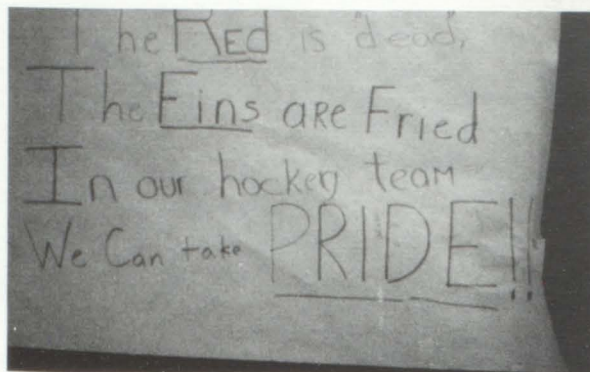 The RED is "dead",
The Eins are Fried
In our hockey team
We Can take PRIDE!!